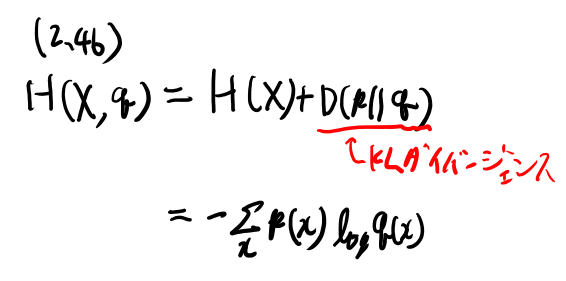 (2.46)
H(X,q) = H(X)+D(p||q)
↑KLダイバージェンス
= -Σ_x p(x) log q(x)